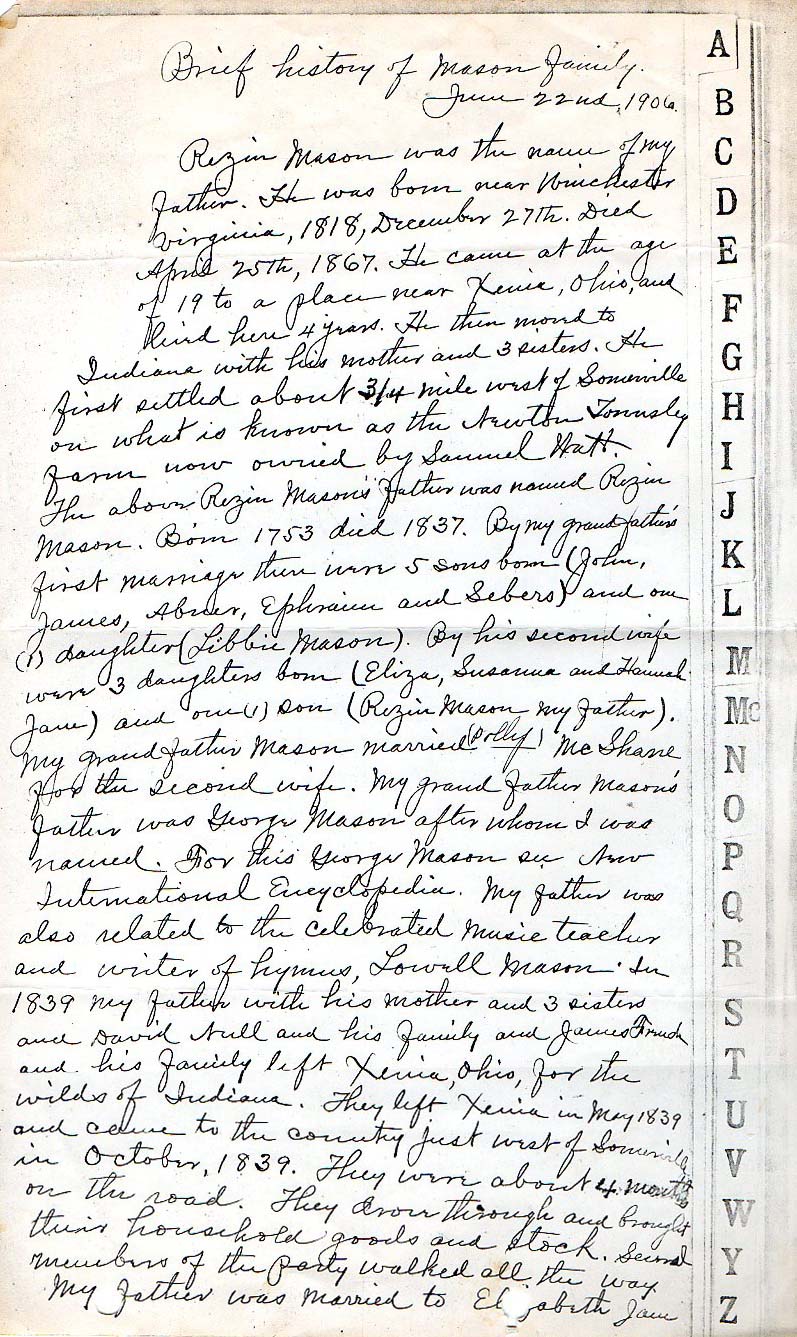 Brief history of Mason Family.
June 22nd, 1906.
Rezin Mason was the name of my
father. He was born near Winchester
Virginia, 1818, December 27th. Died
April 25th, 1867. He came at the age
of 19 to a place near Xenia, Ohio, and
lived here 4 years. He then moved to
Indiana with his mother and 3 sisters. He
first settled about 3/4 mile west of Somerville
on what is known as the Newton Townsley
farm now owned by Samuel Watt.
The above Rezin Mason's father was named Rezin
Mason. Born 1753 died 1837. By my grand father's
first marriage there were 5 sons born (John,
James, Abner, Ephraim and Sebers) and one
(1) daughter (Libbie Mason). By his second wife
were 3 daughters born (Eliza, Susanna and Hannah
Jane) and one (1) son (Rezin Mason my father).
My grand father Mason married (Polly) McShane
for the second wife. My grand father Mason's
father was George Mason after whom I was
named. For this George Mason see New
International Encyclopedia. My father was
also related to the celebrated music teacher
and writer of hymns, Lowell Mason. In
1839 my father with his mother and 3 sisters
and David Null and his family and James French
and his family left Xenia, Ohio, for the
wilds of Indiana. They left Xenia in May 1839
and came to the country just west of Somerville
in October, 1839. They were about 4 months
on the road. They drove through and brought
their household goods and stock. Several
members of the party walked all the way.
My father was married to Elizabeth Jane
A
B
C
D
E
F
G
H
I
J
K
L
M
Mc
N
O
P
Q
R
S
T
U
V
W
Y
Z